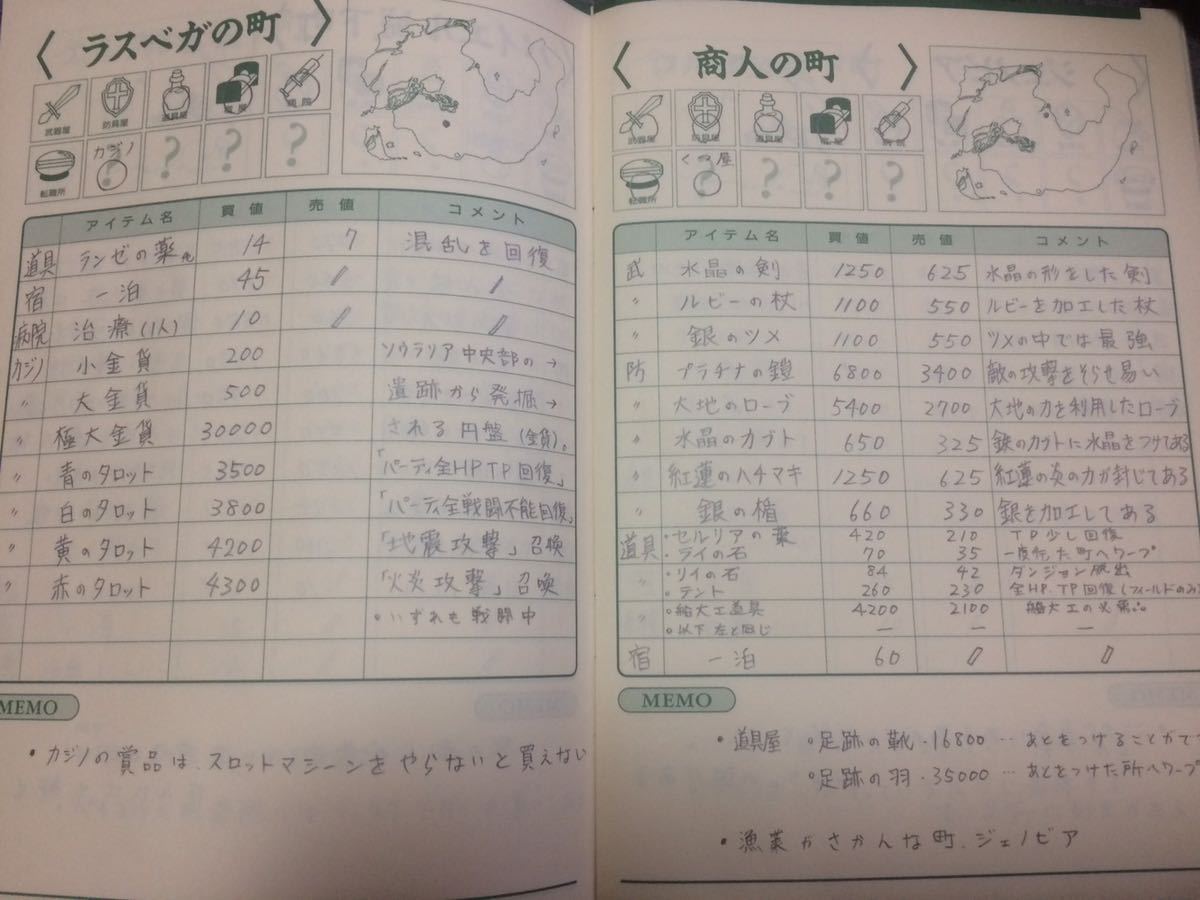 〈 ラスベガの町 〉
武器屋 防具屋 道具屋 宿屋 病院
転職所 カジノ ? ? ? ?
アイテム名 買値 売値 コメント
道具 ランゼの薬 14 7 混乱を回復
宿 一泊 45 〃 〃
病院 治療(1人) 10 〃 〃
カジノ 小金貨 200 ソウラリア中央部の→
〃 大金貨 500 遺跡から発掘→
〃 極大金貨 30000 される円盤(金貨)。
〃 青のタロット 3500 「パーティ全HPTP回復」
〃 白のタロット 3800 「パーティ全戦闘不能回復」
〃 黄のタロット 4200 「地震攻撃」召喚
〃 赤のタロット 4300 「火炎攻撃」召喚
・いずれも戦闘中
MEMO
・カジノの賞品は、スロットマシーンをやらないと買えない
〈 商人の町 〉
武器屋 防具屋 道具屋 宿屋 病院
転職所 くつ屋 ? ? ? ?
アイテム名 買値 売値 コメント
武 水晶の剣 1250 625 水晶の形をした剣
〃 ルビーの杖 1100 550 ルビーを加工した杖
〃 銀のツメ 1100 550 ツメの中では最強
防 プラチナの鎧 6800 3400 敵の攻撃をそらせ易い
〃 大地のローブ 5400 2700 大地の力を利用したローブ
〃 水晶のカブト 650 325 銀のカブトに水晶をつけてある
〃 紅蓮のハチマキ 1250 625 紅蓮の炎の力が封じてある
〃 銀の楯 660 330 銀を加工してある
道具 ・セルリアの薬 420 210 TP少し回復
・ライの石 70 35 一度行った町へワープ
〃 ・リイの石 84 42 ダンジョン脱出
・テント 260 230 全HP.TP回復(フィールドのみ)
〃 ・船大工道具 4200 2100 船大工の必需品
・以下左と同じ ー ー ー
宿 一泊 60 〃 〃
MEMO
・道具屋 ・足跡の靴・16800…あとをつけることができ
・足跡の羽・35000…あとをつけた所へワープ
・漁業がさかんな町、ジェノビア